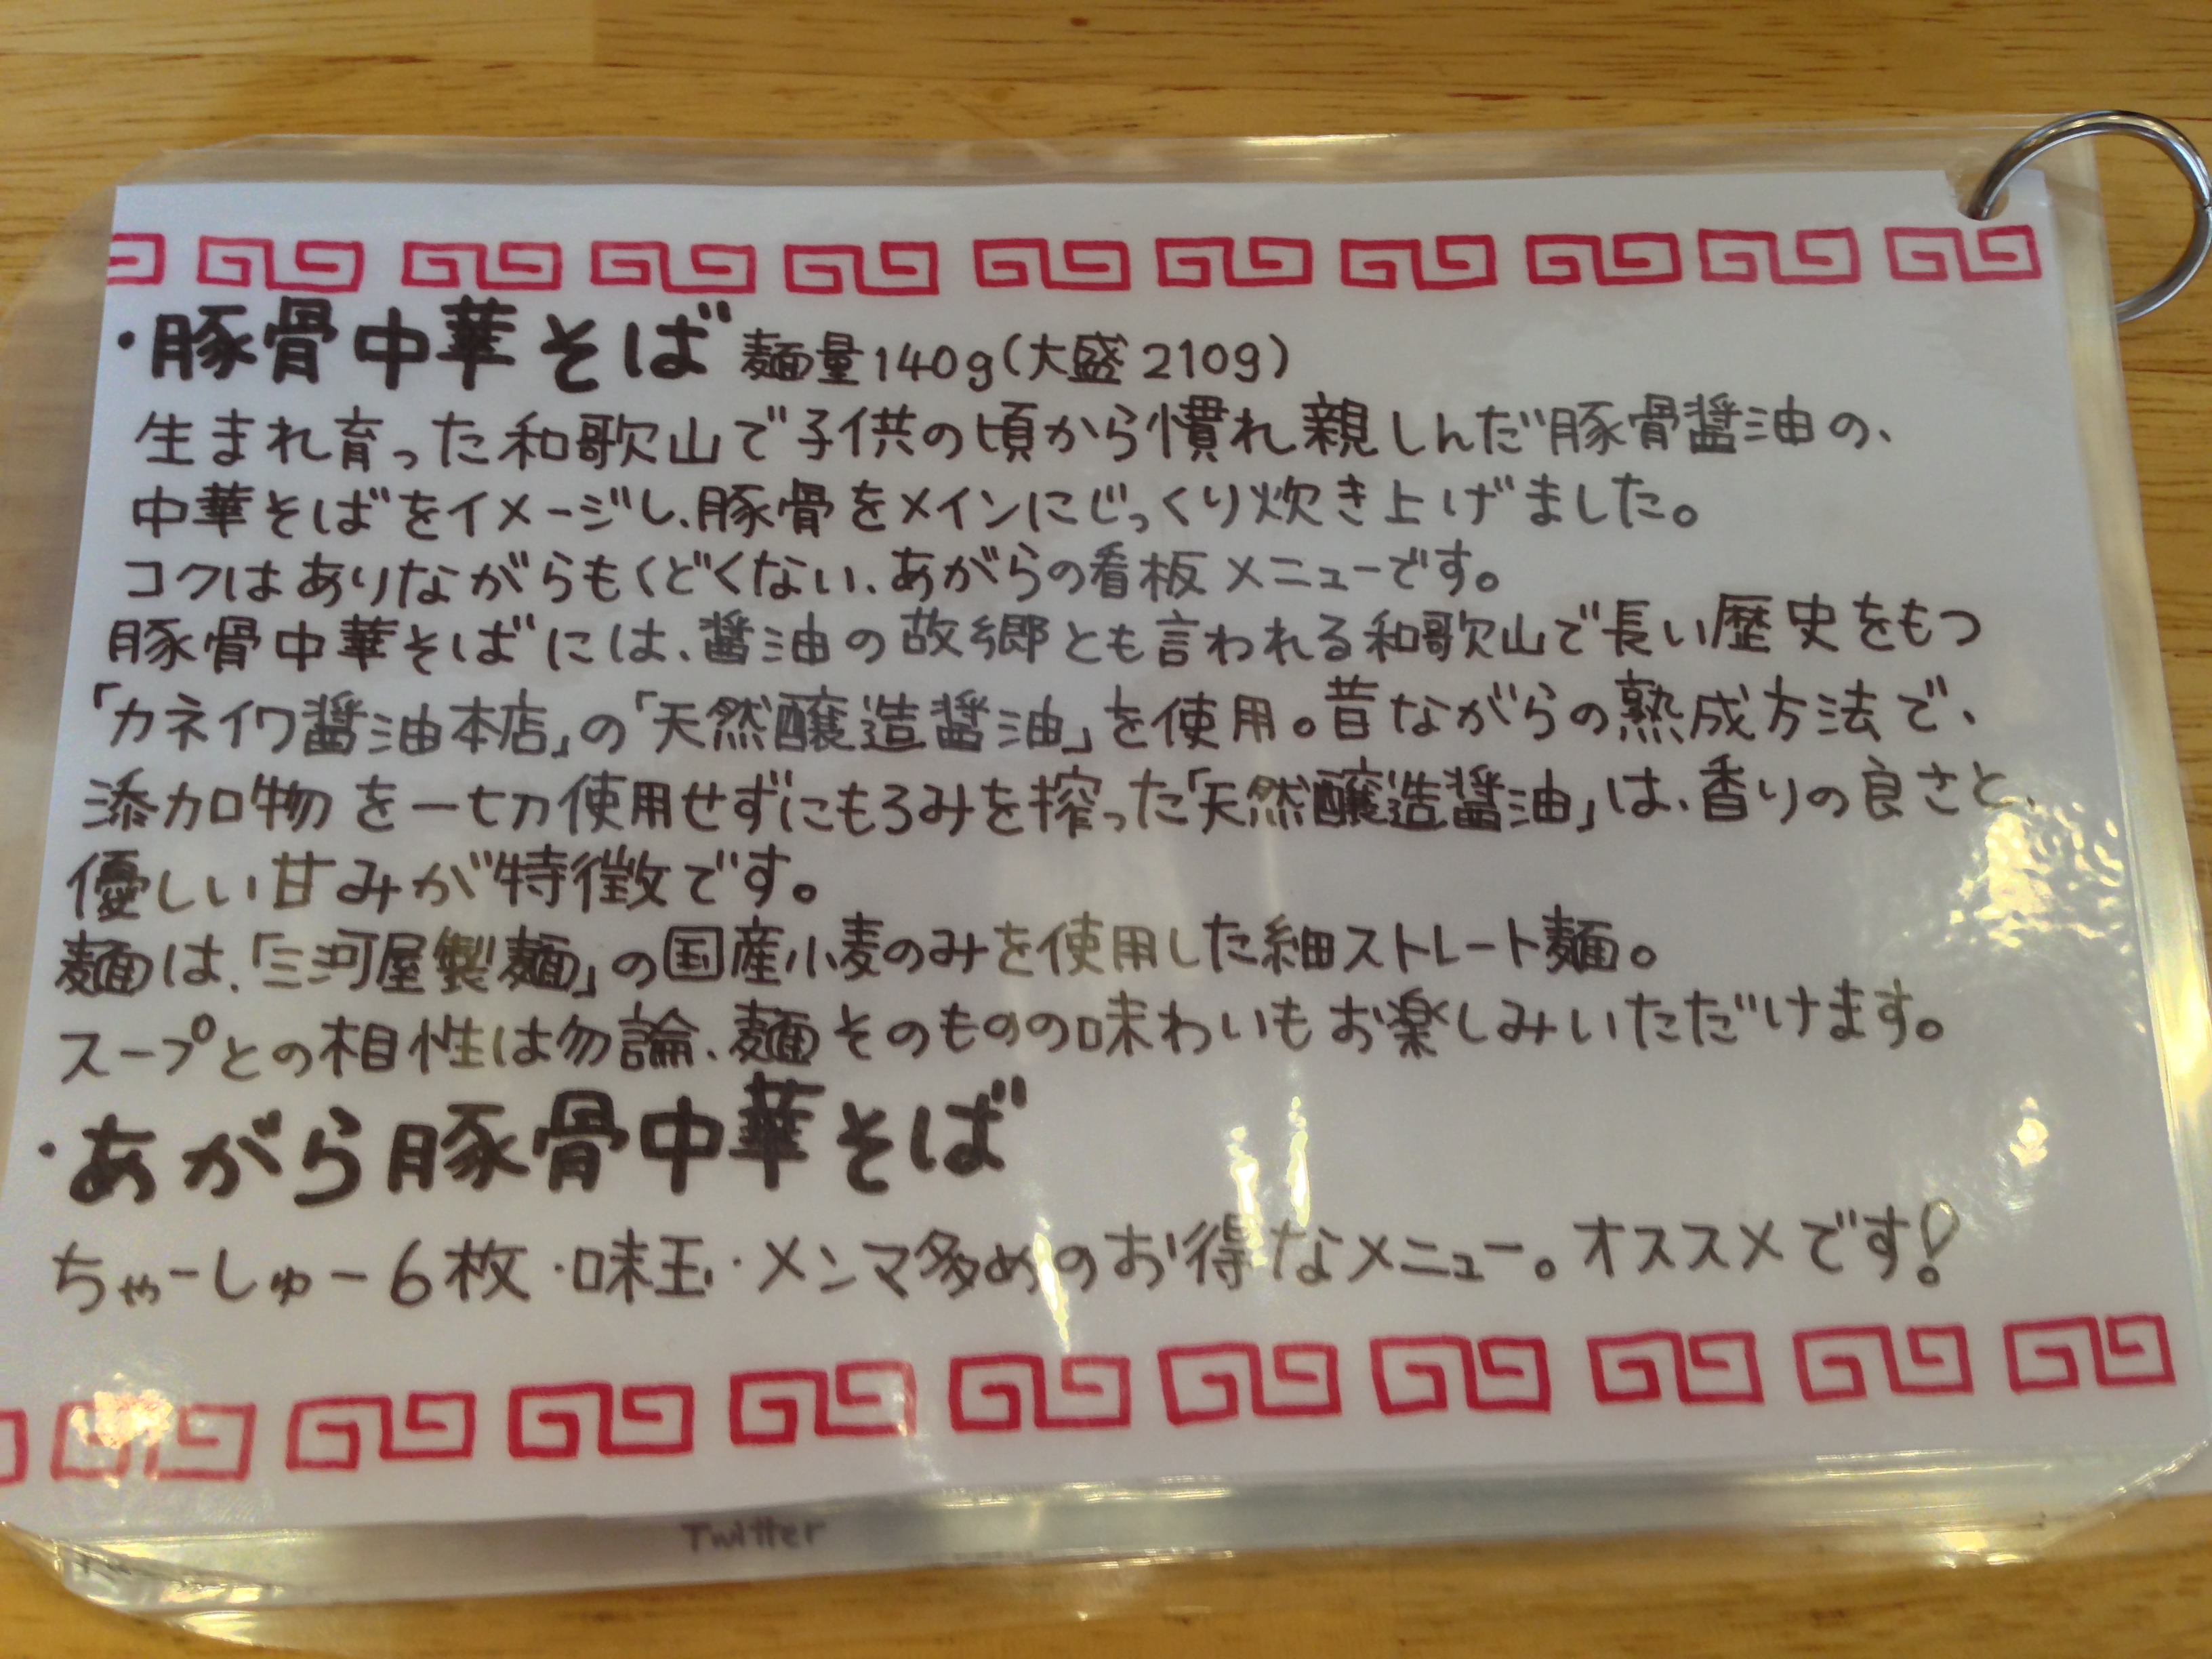 ・豚骨中華そば 麺量140g(大盛210g)
生まれ育った和歌山で子供の頃から慣れ親しんだ豚骨醤油の、
中華そばをイメージし、豚骨をメインにじっくり炊き上げました。
コクはありながらもくどくない、あがらの看板メニューです。
豚骨中華そばには、醤油の故郷とも言われる和歌山で長い歴史をもつ
「カネイワ醤油本店」の「天然醸造醤油」を使用。昔ながらの熟成方法で、
添加物を一切使用せずにもろみを搾った「天然醸造醤油」は、香りの良さと、
優しい甘みが特徴です。
麺は、「三河屋製麺」の国産小麦のみを使用した細ストレート麺。
スープとの相性は勿論、麺そのものの味わいもお楽しみいただけます。
・あがら豚骨中華そば
ちゃーしゅー6枚・味玉・メンマ多めのお得なメニュー。オススメです!
Twitter